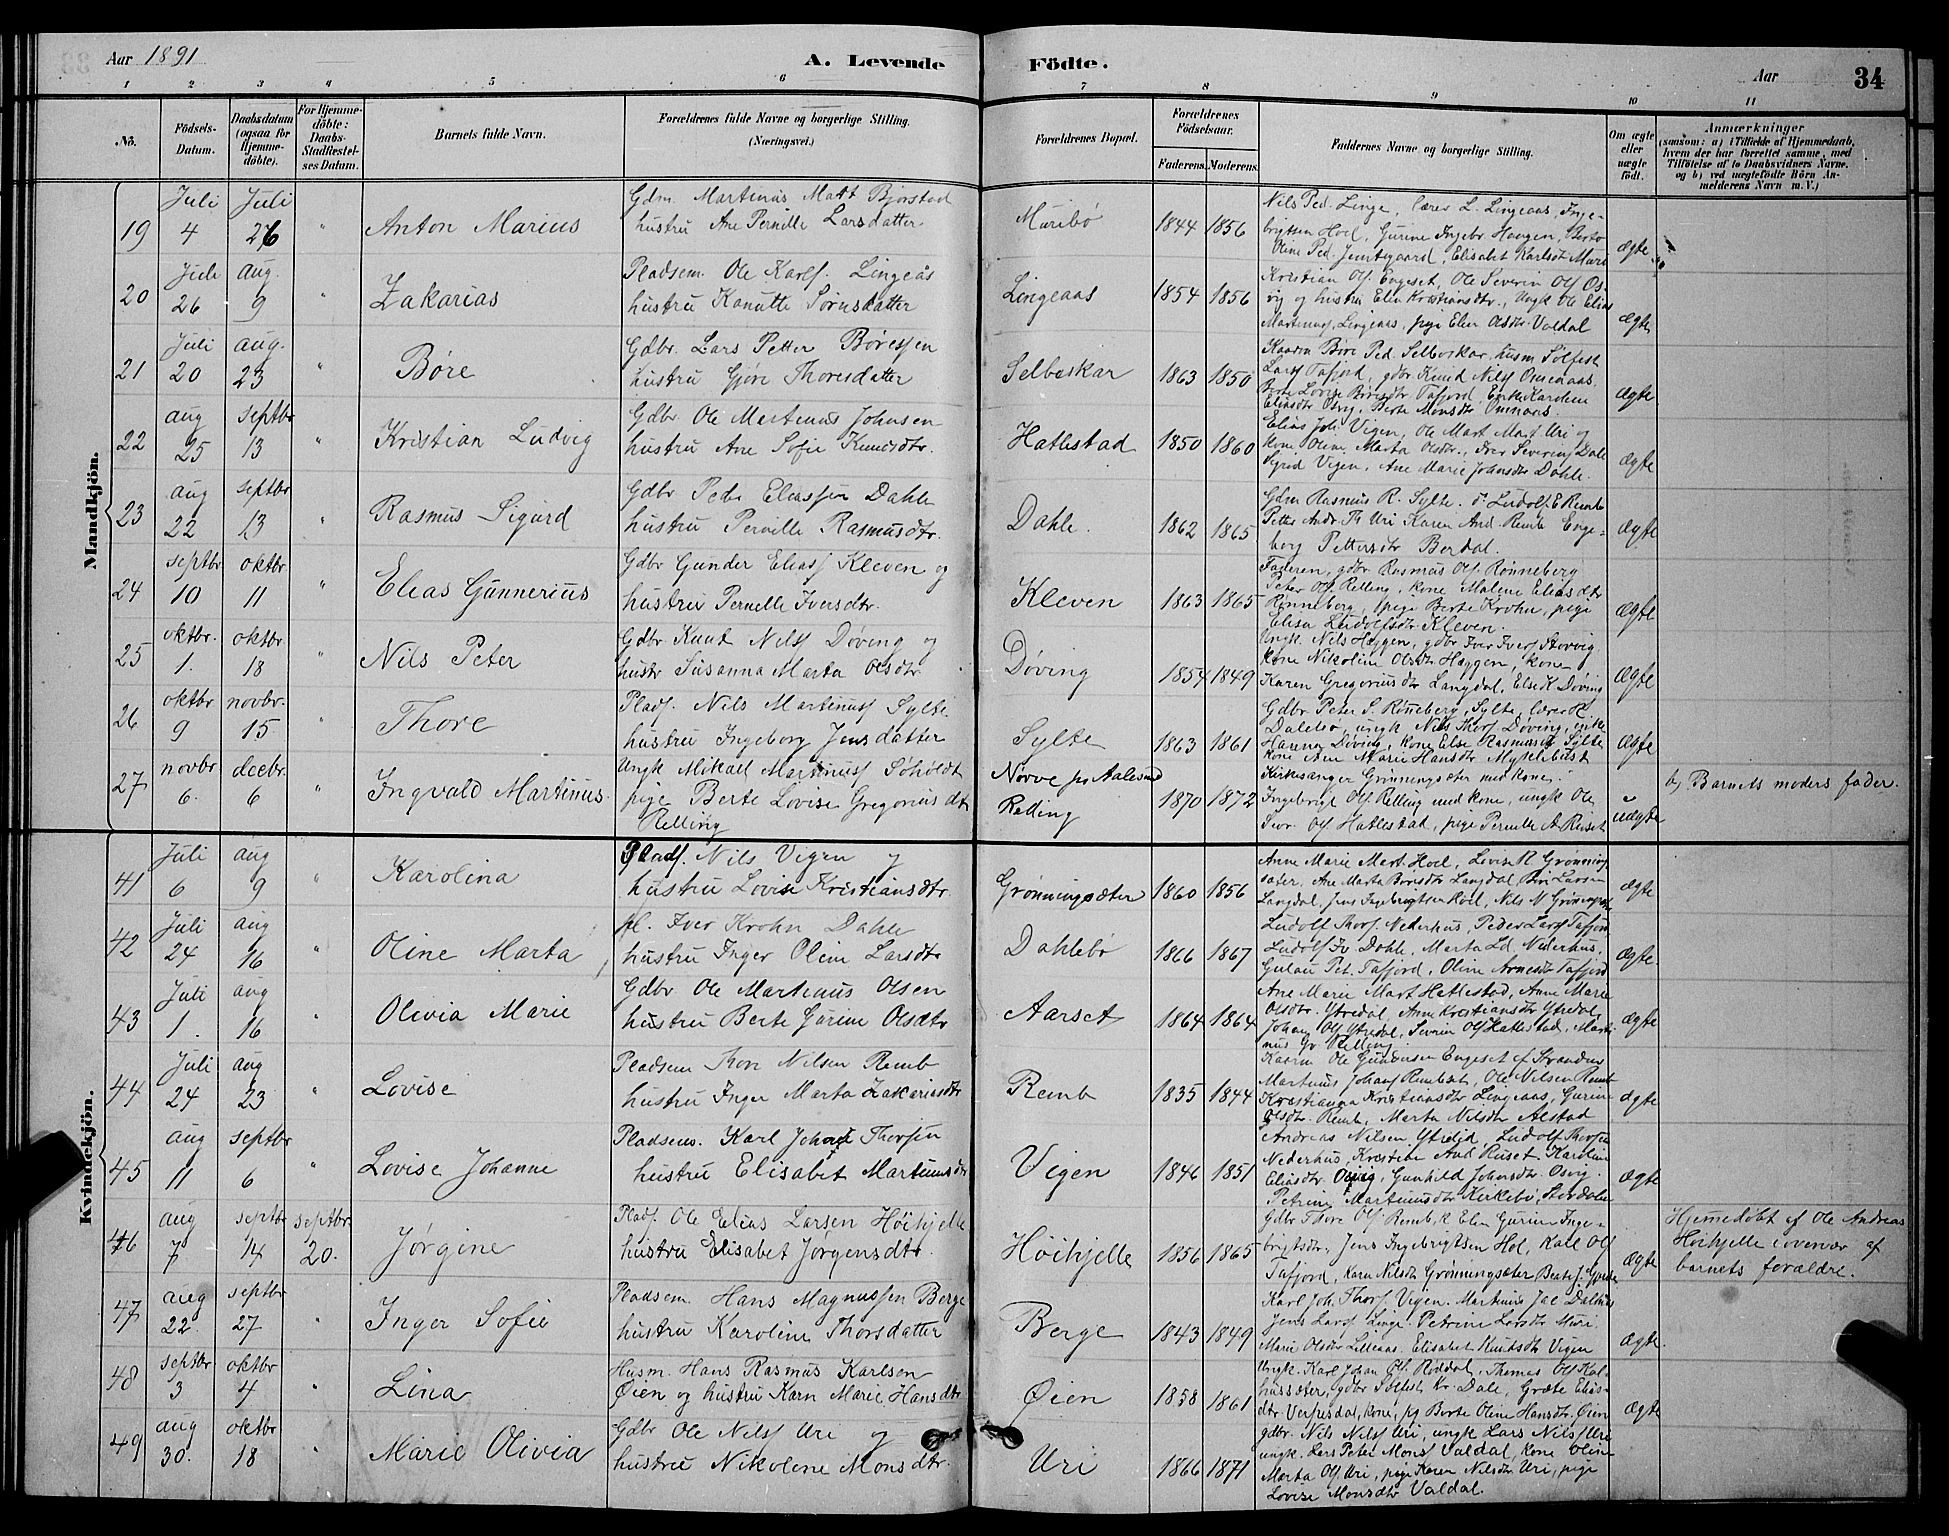 Aar 1891
A. Levende Födte.
Aar
34
1 2 3 4 5 6 7 8 9 10 11
No.
Födsels-Datum.
Daabsdatum (ogsaa for Hjemmedöbte).
For Hjemmedöbte: Daabs-Stadfæstelses Datum.
Barnets fulde Navn.
Forældrenes fulde Navne og borgerlige Stilling. (Næringsvei.)
Forældrenes Bopæl.
Forældrenes Födselsaar.
Faderens. Moderens.
Faddernes Navne og borgerlige Stilling.
Om ægte eller uægte født.
Anmærkninger
(saasom: a) i Tilfælde af Hjemmedaab, hvem der har forrettet samme, med Tilföielse af to Daabsvidners Navne, og b) ved uægtefödte Börn Anmelderens Navn m. V.)
Mandkjön.
19 Juli 4 Juli 26 " Anton Marius
Gdm. Martinus Matt Bjorstad
hustru Ane Pernille Larsdatter
Muribö 1844 1856
Nils Ped. Linge, lærer L. Lingeaas, Inge-
brigtsen Hoel, Gurine Ingebr. Haugen, Berte
Oline Ped. Elisabet Karlsdtr Muri
ægte
20 Juli 26 aug. 9 " Zakarias
Pladsem. Ole Karls. Lingeås
hustru Kanutte Sørnsdatter
Lingeaas 1854 1856
Kristian Ols. Engeset, Ole Severin Ols Os-
vig og hustru Elen Kristiansdtr., Ungk Ole Elias
Martinus. Lingeaas, pige Elen Olsdtr. Valdal
ægte
21 Juli 20 aug. 23 " Børe
Gdbr. Lars Petter Børessen
hustru Gjøre Thoresdatter
Selboskar 1863 1850
Kaarm Børe Ped. Selboskar, husm Solfest
Lars Tafjord, gdbr Knud Nils Omenaas.
Berte Lovise Børesdtr Tafjord, Enke Karoline
Eliasdtr Osvig, Berte Monsdtr Omnaas.
ægte
22 aug 25 septbr 13 " Kristian Ludvig
Gdbr. Ole Martinus Johnsen
hustru Ane Sofie Knudsdtr.
Hatlestad 1850 1860
Elias Joh. Vigen, Ole Mart. Mart Uri og
kone Oline Marta Olsdtr., Iver Severins Dale
Sigrid Vigen, Ane Marie Johansdtr Dahle.
ægte
23 aug 22 septbr 13 " Rasmus Sigurd
Gdbr Peder Eliassen Dahle
hustru Pernille Rasmusdtr.
Dahle. 1862 1865
Gdm Rasmus R. Sylte. do Ludolf E Remb
Petter Andr. Th Uri Karen And. Remb Enge-
borg Pettersdtr Berdal.
ægte
24 septbr 10 oktbr. 11 " Elias Gunnerius
Gdbr Gunder Elias Kleven og
hustru Pernille Iversdtr.
Kleven 1863 1865
Faderen, gdbr Rasmus Ols Rønneberg
Peter Ols Relling, kone Malene Eliasdtr
Rønneberg, pige Berte Krohn, pige
Elisa Ludolfsdtr. Kleven.
ægte
25 oktbr. 1. oktbr. 18 Nils Peter
Gdbr Knud Nils Døving og
hustr Susanna Marta Olsdtr
Døving 1854 1849
Ungk. Nils Heggen, gdbr Iver Ivers Storvig
kone Nikoline Olsdtr Heggen, kone
Karen Gregoriusdtr Langdal, Else K Døving
ægte
26 oktbr 9 novbr. 15 " Thore
Plads. Nils Martinus Sylte.
hustru Ingeborg Jensdatter
Sylte 1863 1861
Gdbr Peter S. Rønneberg, Sylte, lærer R
Dalebø, ungk. Nils Thors Døving, enke
Døving, kone Else Rasmusdtr Sylte
kone Ane Marie Hansdtr Myklebust
ægte
27 novbr 6. decbr. 6 " Ingvald Martinus
Ungk Mikael Martinus Søholdt
pige Berte Lovise Gregoriusdtr
Relling
Nørve pr Aalesund
Relling 1870 1872
Kirkesanger Grønningsæter med kone.
Ingebrigt Ols Relling med kone, ungk Ole
Sevr. Ols Hatlestad, pige Pernille A Ruset
uægte
b) Barnets moders fader.
Kvindekjön.
41 Juli 6 aug 9 " Karolina
Plads. Nils Vigen og
hustru Lovise Kristiansdtr.
Grønningsæter 1860 1856
Anne Marie Mart. Hoel, Lovise R Grønning
sæter, Ane Marta Børesdtr Langdal, Larsen
Langdal, Jens Ingebrigtsen Hoel, Nils N Grønningsæt
ægte
42 Juli 24 aug 16 " Oline Marta
pl. Iver Krohn Dahle
hustru Inger Oline Larsdtr
Dahlebø 1866 1867
Ludolf Thors Nederhus, Peder Lars Tafjord
Ludolf Iv Dahle, Marta Ld. Nederhus,
Gulau Pet. Tafjord, Oline Arnesdtr Tafjord
ægte.
43 Juli 1. aug 16 " Olivia Marie
Gdbr Ole Martinus Olsen
hustru Berte Gurine Olsdtr
Aarset 1864 1864
Ane Marie Mart Hatlestad, Anne Marie
Olsdtr. Ytredal, Anne Kristiansdtr Ytredal,
Johan Ols Ytredal, Severin Ols Hatlestad, Marti-
nus Gr Relling.
ægte
44 Juli 24 aug 23 " Lovise
Pladsem Thore Nilsen Remb
hustru Inger Marta Zakariasdtr
Remb 1835 1844
Kaarm Ole Gundersen Engeset af Stranden
Martinus Johans Rembset, Ole Nilsen Remb
Kristianna Kristiansdtr Lingeaas, Gurine
Olsdtr. Remb, Marta Nilsdtr Alstad
ægte
45 aug 11 septbr 6 " Lovise Johanne
Pladsem. Karl Johan Thorsen
hustru Elisabet Martinusdtr
Vigen 1846 1851
Andreas Nilsen Ytrelid, Ludolf Thorsen
Nederhus, Kristine And Ruset. Karoline
Eliasdtr. Osvig, Gunhild Johansdtr Osvig.
Petrine Martinusdtr Kirkebø, Stordalen
ægte
46 aug 7 septbr 14 septbr. 20. Jørgine
Plads. Ole Elias Larsen Höihjelle
hustru Elisabet Jørgensdtr.
Höihjelle 1856 1865
Gdbr Thore Ols Remb, k Elen Gurine Inge-
brigtsdtr, Jens Ingebrigtsen Hol, Kall Ols
Tafjord, Karn Nilsdtr Grønningsæter
ægte
Hjemmedöbt af Ole Andreas
Höihjelle i overvær af
barnets forældre.
47 aug 22. septbr 27 " Inger Sofie
Pladsem. Hans Magnussen Berge
hustru Karoline Thorsdatter
Berge 1843 1849
Karl Joh. Thors Vigen. Martinus Jac Dalhus
Jens Lars Linge. Petrine Larsdtr Muri
Marie Olsdtr Lilleaas. Elisabet Knudsdtr Vigen
ægte.
48 septbr 3 oktbr 4 " Lina
Husm. Hans Rasmus Karlsen
Øien og hustru Karn Marie Hansdtr.
Øien 1858 1861
Ungk. Karl Johan Ols. Røddal, Thomas Ols Kal-
hussæter, gdbr Solfest Kr. Dale, Græte Elias-
dtr. Verpesdal, kone, pg Berte Oline Hansdtr. Øien
ægte
49 aug 30. oktbr 18 " Marie Olivia
Gdbr Ole Nils Uri og
hustru Nikoline Monsdtr.
Uri 1866 1871
gdbr. Nils Nils Uri, ungk Lars Nils Uri
ungk. Lars Peter Mons Valdal, kone Oline
Marta Ols Uri, pige Karen Nilsdtr Uri, pige
Lovise Monsdtr Valdal.